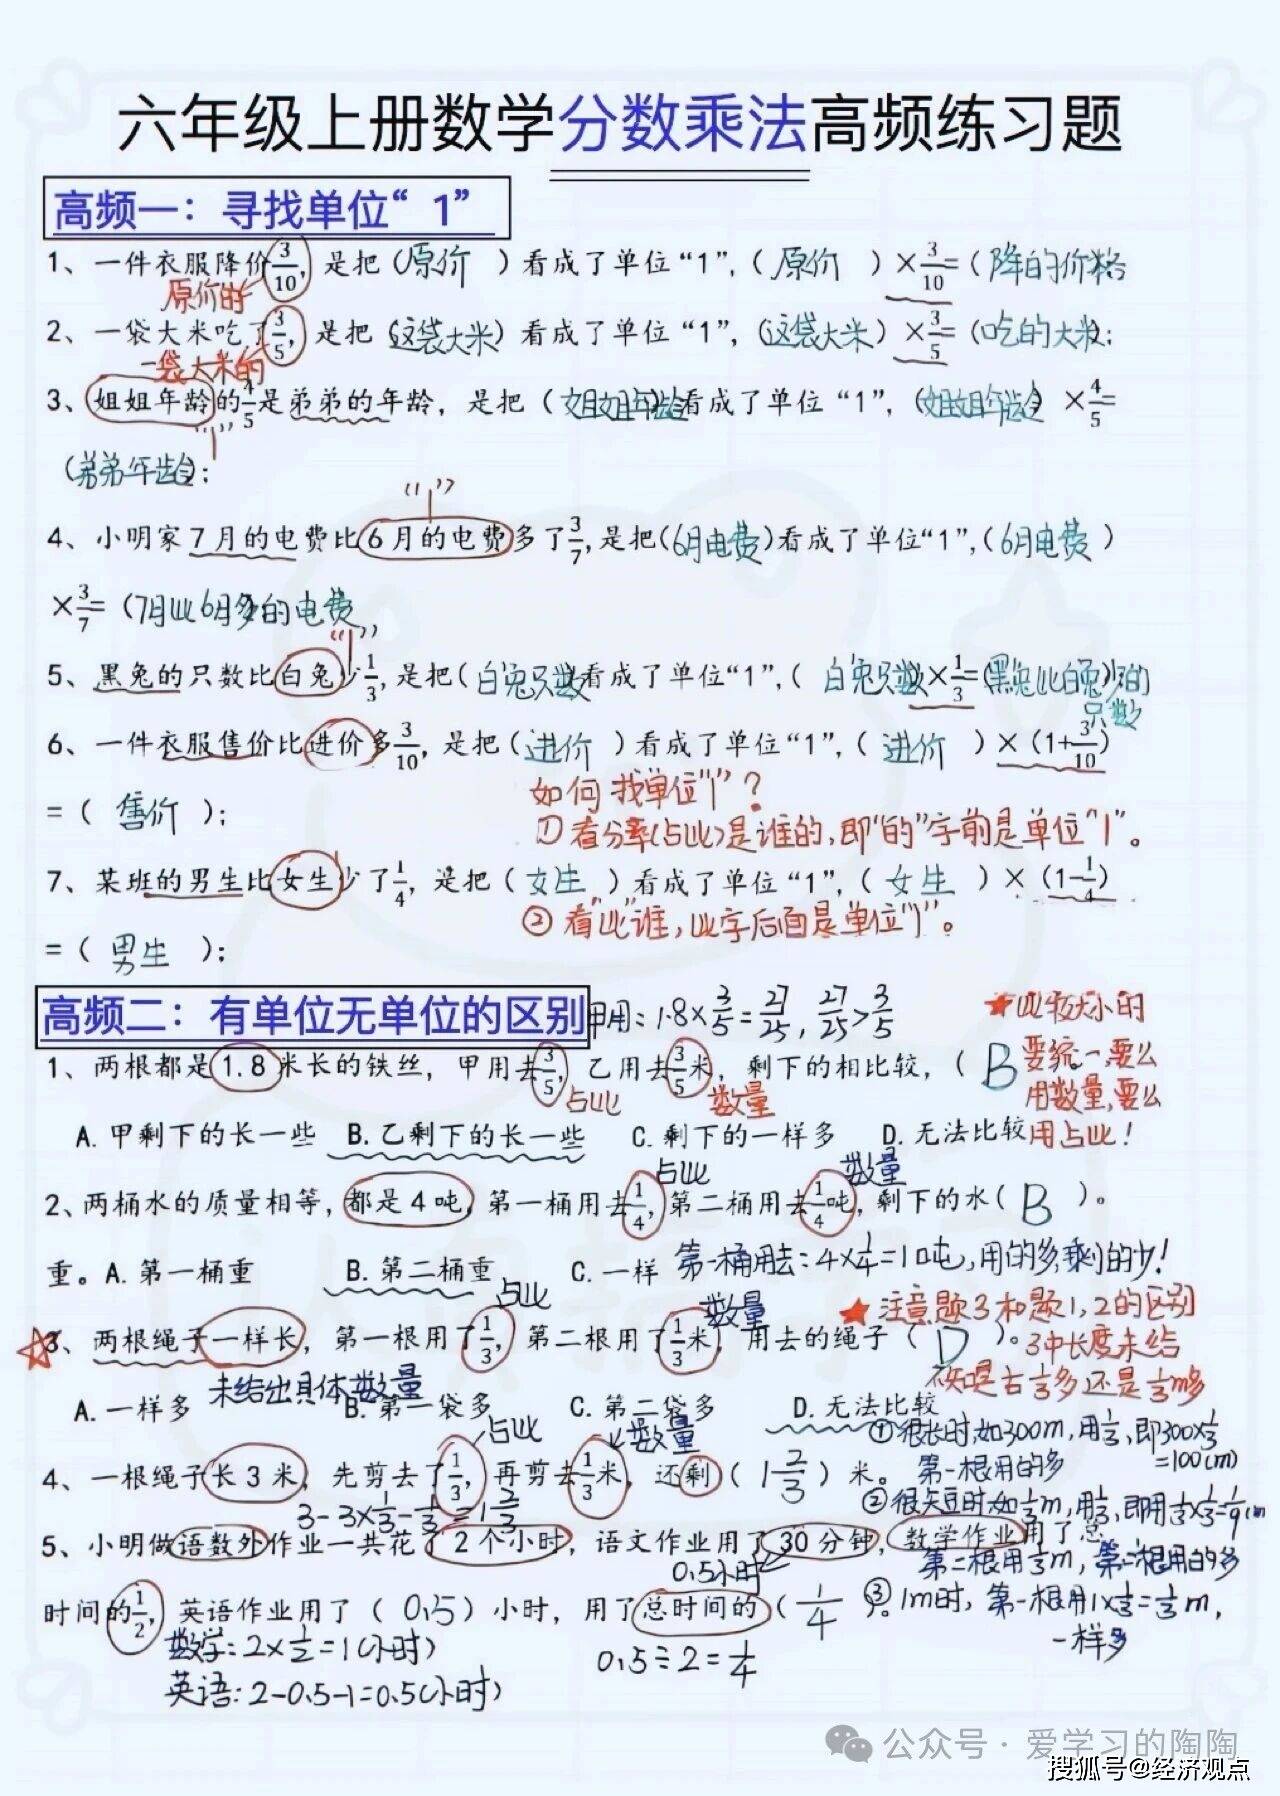 六年级上册数学分数乘法高频练习题
高频一：寻找单位“1”
1、一件衣服降价3/10，是把（原价）看成了单位“1”，（原价）×3/10=（降的价格
原价的
2、一袋大米吃了3/5，是把（这袋大米）看成了单位“1”，（这袋大米）×3/5=（吃的大米）；
一袋大米的
3、姐姐年龄的4/5是弟弟的年龄，是把（姐姐年龄）看成了单位“1”，（姐姐年龄）×4/5=
“1”
（弟弟年龄）；
“1”
4、小明家7月的电费比6月的电费多了3/7，是把（6月电费）看成了单位“1”，（6月电费）
×3/7=（7月比6月多的电费
“1”
5、黑兔的只数比白兔少1/3，是把（白兔只数）看成了单位“1”，（白兔只数）×1/3=（黑兔比白兔少的
只数
6、一件衣服售价比进价多3/10，是把（进价）看成了单位“1”，（进价）×（1+3/10）
如何找单位“1”？
=（售价）；
①看分率（占比）是谁的，即“的”字前是单位“1”。
7、某班的男生比女生少了1/4，是把（女生）看成了单位“1”，（女生）×（1-1/4）
②看“比”谁，比字后面是单位“1”。
=（男生）；
高频二：有单位无单位的区别
甲用：1.8×3/5=27/25，27/25>3/5
★比较大小的
要统一，要么
用数量，要么
用占比！
1、两根都是1.8米长的铁丝，甲用去3/5，乙用去3/5米，剩下的相比较，（B
占比 数量
A.甲剩下的长一些 B.乙剩下的长一些 C.剩下的一样多 D.无法比较
占比 数量
2、两桶水的质量相等，都是4吨，第一桶用去1/4，第二桶用去1/4吨，剩下的水（B）。
重。A.第一桶重 B.第二桶重 C.一样
第一桶用去：4×1/4=1吨，用的多，剩的少！
占比 数量
★注意题3和题1,2的区别
☆3、两根绳子一样长，第一根用了1/3，第二根用了1/3米，用去的绳子（D）。
3中长度未给
不知是占1/3多还是1/3m多
未给出具体数量
A.一样多 B.第一袋多 C.第二袋多 D.无法比较
占比 数量
①很长时，如300m，用1/3，即300×1/3
=100(m)
第一根用的多
4、一根绳子长3米，先剪去了1/3，再剪去1/3米，还剩（1 2/3）米。
3-3×1/3-1/3=1 2/3
②很短时如1/3m，用1/3，即用1/3×1/3=1/9m
5、小明做语数外作业一共花了2个小时，语文作业用了30分钟，数学作业用了总
0.5小时
第二根用1/3m，第二根用的多
时间的1/2，英语作业用了（0.5）小时，用了总时间的（1/4）。
③1m时，第一根用1×1/3=1/3m，
一样多
数学：2×1/2=1(小时)
0.5÷2=1/4
英语：2-0.5-1=0.5(小时)
公众号·爱学习的陶陶
搜狐号@经济观点